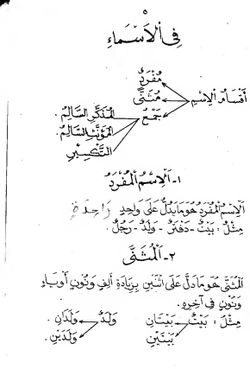 فِي الْأَسْمَاءِ
مُفْرَدٌ
أَقْسَامُ الِاسْمِ مُثَنًّى
جَمْعٌ
الْمُذَكَّرِ السَّالِمُ.
الْمُؤَنَّثِ السَّالِمُ.
التَّكْسِيرِ
١- اَلْاِسْمُ الْمُفْرَدُ
اَلْاِسْمُ الْمُفْرَدُ هُوَ مَا يَدُلُّ عَلَى وَاحِدٍ
مِثْلُ: بَيْتٌ - دَفْتَرٌ - وَلَدٌ - رَجُلٌ
٢- اَلْمُثَنَّى
اَلْمُثَنَّى هُوَ مَا دَلَّ عَلَى اثْنَيْنِ بِزِيَادَةِ أَلِفٍ وَنُونٍ أَوْ يَاءٍ
وَنُونٍ فِي آخِرِهِ.
مِثْلُ: بَيْتٌ بَيْتَانِ وَلَدٌ وَلَدَانِ.
بَيْتَيْنِ وَلَدَيْنِ.